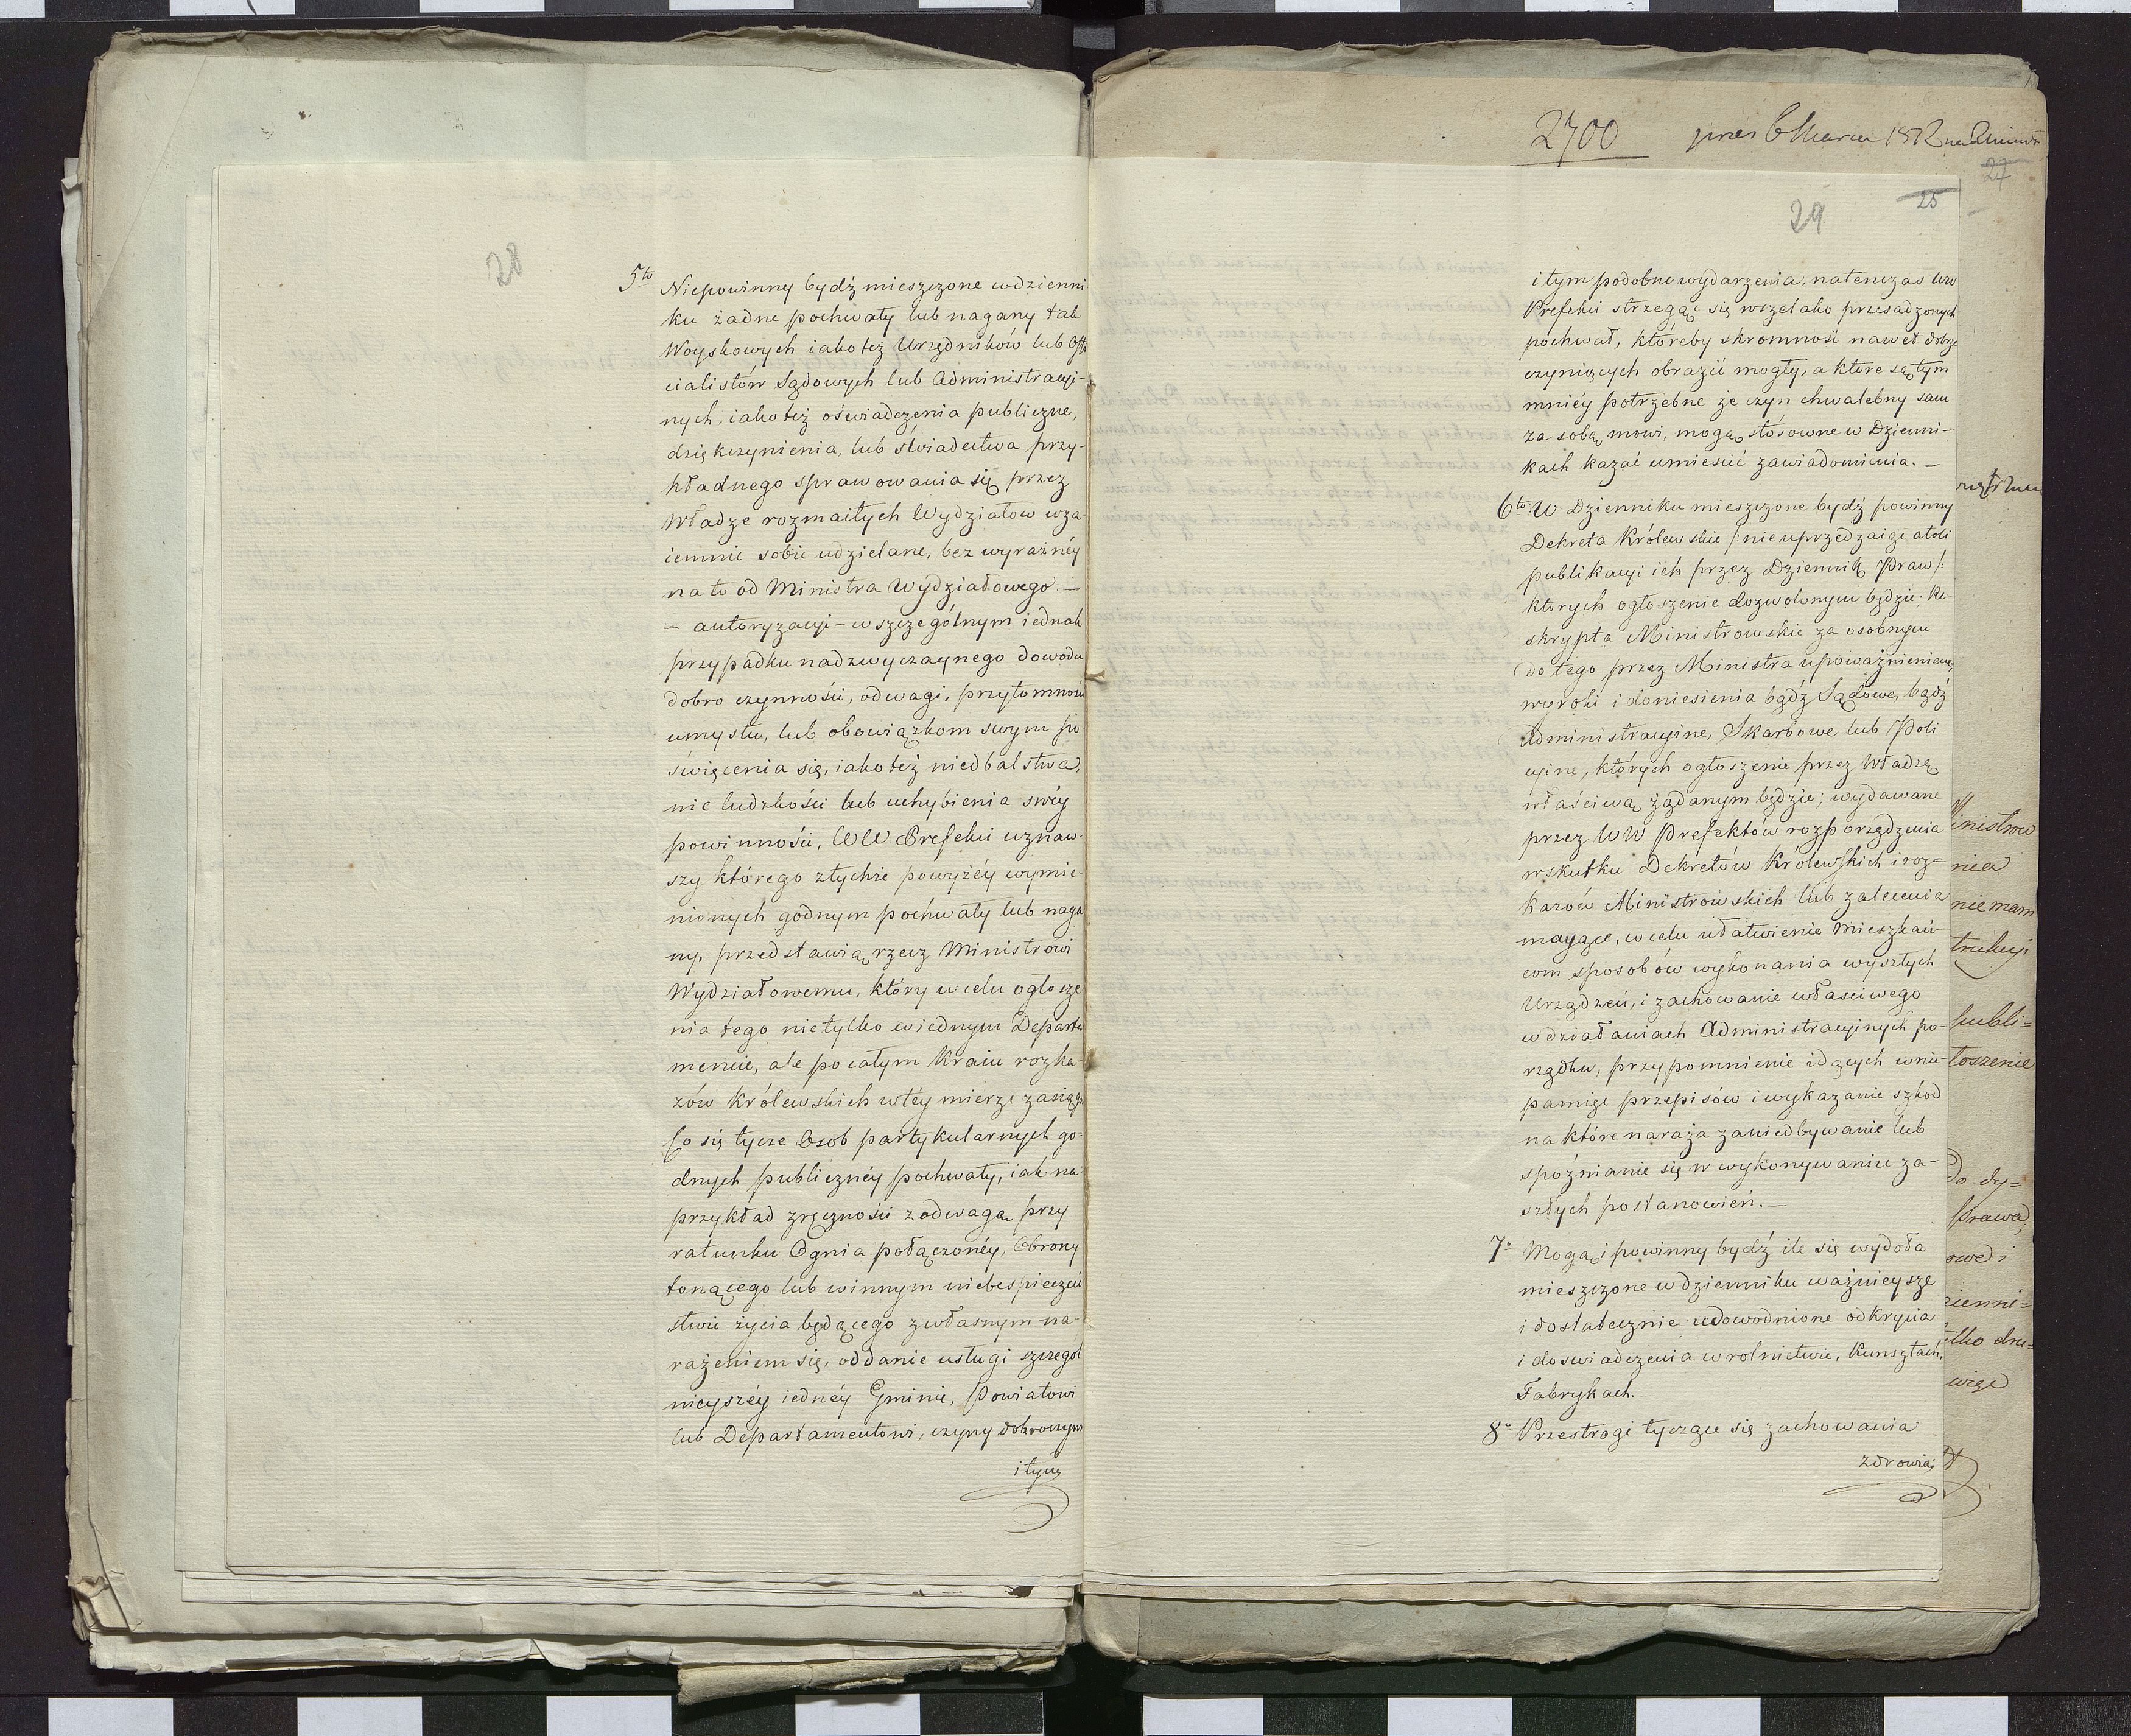 28
5to Niepowinny bydź mieszczone wdzienni
ku żadne pochwały lub nagany tak
Woyskowych iako też Urzędników lub Offi
cialistów Sądowych lub Administracyi-
nych, iako też oświadczenia publiczne,
dziękczynienia, lub świadectwa przy-
kładnego sprawowania się przez
Władze rozmaitych Wydziałow wza-
iemnie sobie udzielane, bez wyraźnéy
na to od Ministra Wydziałowego —
— autoryzacyi — w szczególnym iednak
przypadku nadzwyczaynego dowodu
dobroczynności, odwagi, przytomności
umysłu, lub obowiązkom swym po
święcenia się, iako też niedbalstwa,
nieludzkości lub uchybienia swéy
powinności, WW Prefekci uznaw-
szy którego ztychże powyżéy wymie-
nionych godnym pochwały lub naga
ny, przedstawią rzecz Ministrowi
Wydziałowemu, który w celu ogłosze
nia tego nietylko wiednym Departa
mencie, ale po całym Kraiu rozka-
zów Królewskich wtéy mierze zasięgn
Co się tycze Osob partykularnych go-
dnych publicznéy pochwały, iak na
przykład zręczności z odwagą przy
ratunku Ognia połączonéy, Obrony
tonącego lub winnym niebespieczeń
stwie życia będącego zwłasnym na-
rażeniem się, oddanie usługi szczegól
nieyszéy iednéy Gminie, Powiatowi
lub Departamentowi, czyny dobroczynn
i tym
2700
1812
27
29
25
i tym podobne wydarzenia, natenczas WW
Prefekci strzegąc się wszelako przesadzonych
pochwał, któreby skromność nawet dobrze
czyniących obrazić mogły, a które są tym
mniéy potrzebne że czyn chwalebny sam
za sobą mowi, mogą stósowne w Dzienni-
kach kazać umieścić zawiadomienia. —
6to W Dzienniku mieszczone bydź powinny
Dekreta Królewskie /: nieuprzedzaiąc atoli
publikacyi ich przez Dziennik Praw :/
ktorych ogłoszenie dozwolonym będzie; Re
skrypta Ministrowskie za osobnym
do tego przez Ministra upoważnieniem,
wyroki i doniesienia bądź Sądowe, bądź
Administracyine, Skarbowe lub Poli-
cyine, których ogłoszenie przez Władzę
właściwą żądanym będzie; wydawane
przez WW Prefektów rozporządzenia
wskutku Dekretów Królewskich i roz-
kazów Ministrowskich lub zalecenia
maiące, w celu ułatwienie mieszkań-
com sposobów wykonania wyszłych
Urządzeń, i zachowanie właściwego
w działaniach Administracyinych po-
rządku, przypomnienie idących w nie-
pamięć przepisów i wykazanie szkod
na które naraża zaniedbywanie lub
spóźnianie się w wykonywaniu za-
szłych postanowień. —
7o Mogą i powinny bydź ile się wydoła
mieszczone w dzienniku ważnieysze
i dostatecznie udowodnione odkrycia
i doswiadczenia w rolnictwie, Kunsztach,
Fabrykach.
8o Przestrogi tyczące się zachowania
zdrowia
inistrow
nia
nie mam
trukcyi
publi=
łoszenie
Do dy=
Prawa,
owe i
zienni=
ylko dru=
więc